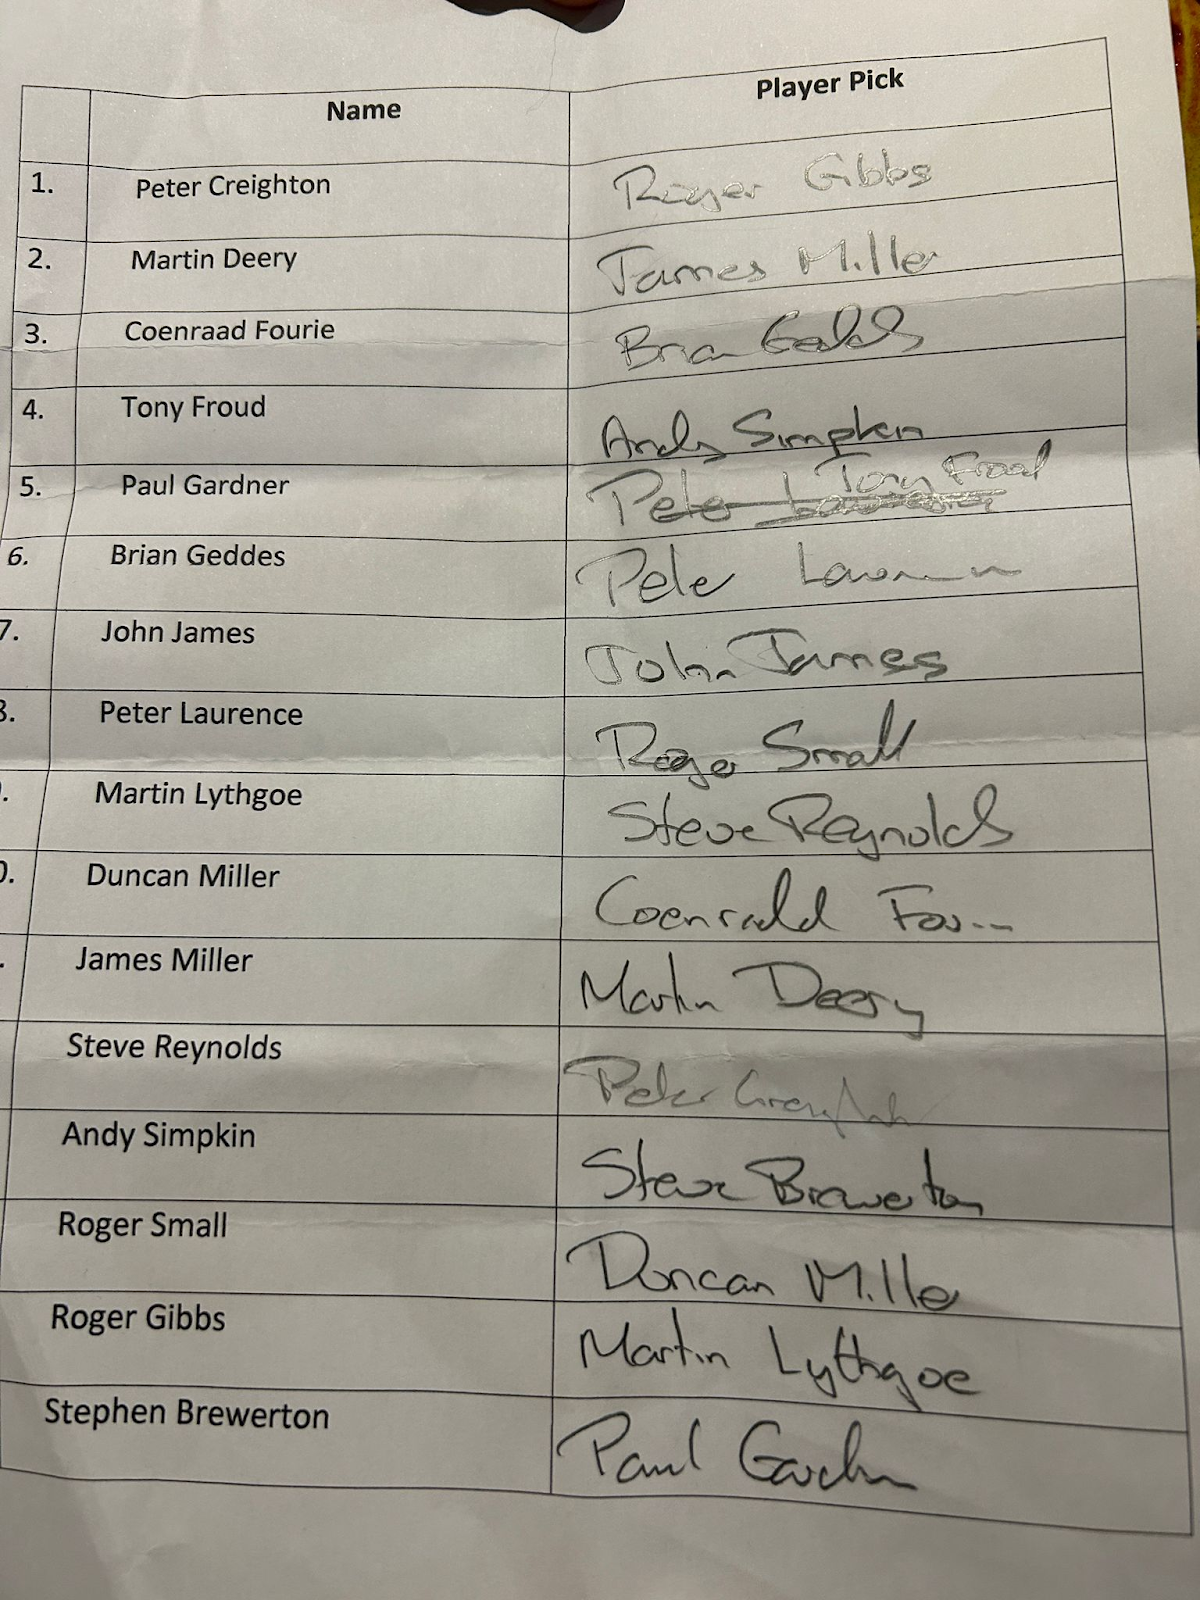 Name Player Pick
1. Peter Creighton Roger Gibbs
2. Martin Deery James Miller
3. Coenraad Fourie Brian Geddes
4. Tony Froud Andy Simpkin
5. Paul Gardner Tony Froud
Peter
6. Brian Geddes Peter
7. John James John James
8. Peter Laurence Roger Small
. Martin Lythgoe Steve Reynolds
0. Duncan Miller Coenrald Fou...
. James Miller Martin Deery
Steve Reynolds Peter Creighton
Andy Simpkin Steve Brewerton
Roger Small Duncan Miller
Roger Gibbs Martin Lythgoe
Stephen Brewerton Paul Gardner